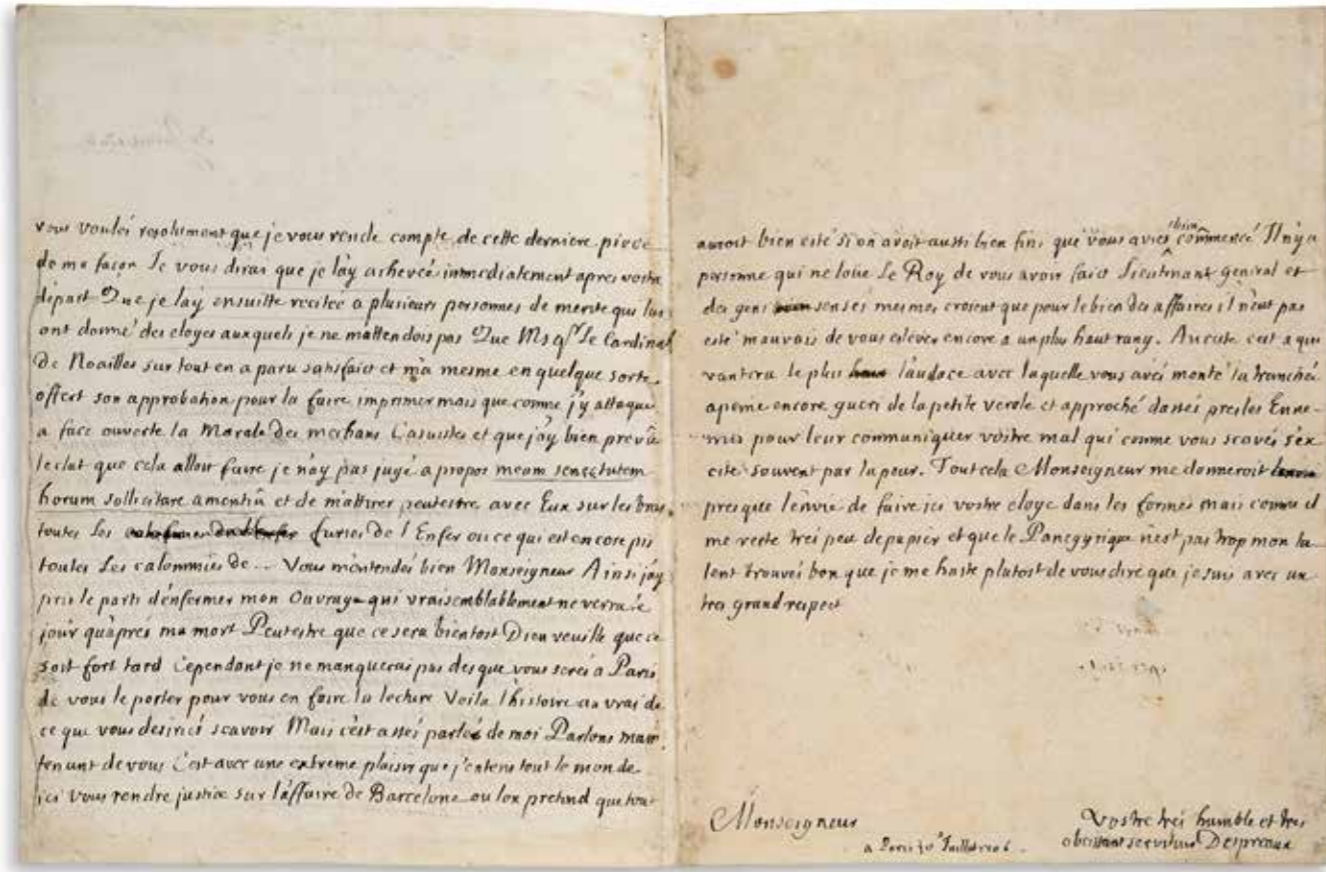 vous voulés resolument que je vous rende compte de cette derniere piece
de ma façon Je vous dirai que je l'ay achevée immediatement apres vostre
depart Que je l'ay ensuitte recitée a plusieurs personnes de merite qui lui
ont donné des eloges auxquels je ne m'attendois pas Que Msgr Le Cardinal
de Noailles sur tout en a paru satisfaict et m'a mesme en quelque sorte
offert son approbation pour la faire imprimer mais que comme j'y attaque
a face ouverte la Morale des meschans Casuistes et que j'ay bien prevû
l'eclat que cela alloit faire je n'ay pas jugé a propos meam senectutem
horum sollicitare amentiâ et de m'attirer peutestre avec Eux sur les bras
toutes les furies de l'Enfer ou ce qui est encore pis
toutes les calomnies de... Vous m'entendés bien Monseigneur Ainsi j'ay
pris le parti d'enfermer mon Ouvrage qui vraisemblablement ne verra le
jour qu'aprés ma mort Peutestre que ce sera bientost Dieu veuille que ce
soit fort tard Cependant je ne manquerai pas des que vous serés a Paris
de vous le porter pour vous en faire la lecture Voila l'histoire au vrai de
ce que vous desiriés scavoir Mais c'est assés parlé de moi Parlons main
tenant de vous C'est avec une extreme plaisir que j'entens tout le monde
ici vous rendre justice sur l'affaire de Barcelone ou l'on pretend que tout
auroit bien esté si on avoit aussi bien fini que vous aviés bien commencé Il n'y a
personne qui ne loue Le Roy de vous avoir faict Lieutenant general et
des gens sensés mesmes croient que pour le bien des affaires il n'eut pas
esté mauvais de vous eslever encore a un plus haut rang. Au reste c'est a qui
vantera le plus l'audace avec laquelle vous avés monté la tranchée
a peine encore gueri de la petite verole et approché d'assés pres les Enne-
mis pour leur communiquer vostre mal qui comme vous scavés s'ex
cite souvent par la peur. Tout cela Monseigneur me donneroit
presque l'envie de faire ici vostre eloge dans les formes mais comme il
me reste tres peu de papier et que le Panegyrique n'est pas trop mon ta
lent trouvés bon que je me haste plutost de vous dire que je suis avec un
tres grand respect
Monseigneur
Vostre tres humble et tres
obeissant serviteur Despreaux
a Paris Juillet 1706.